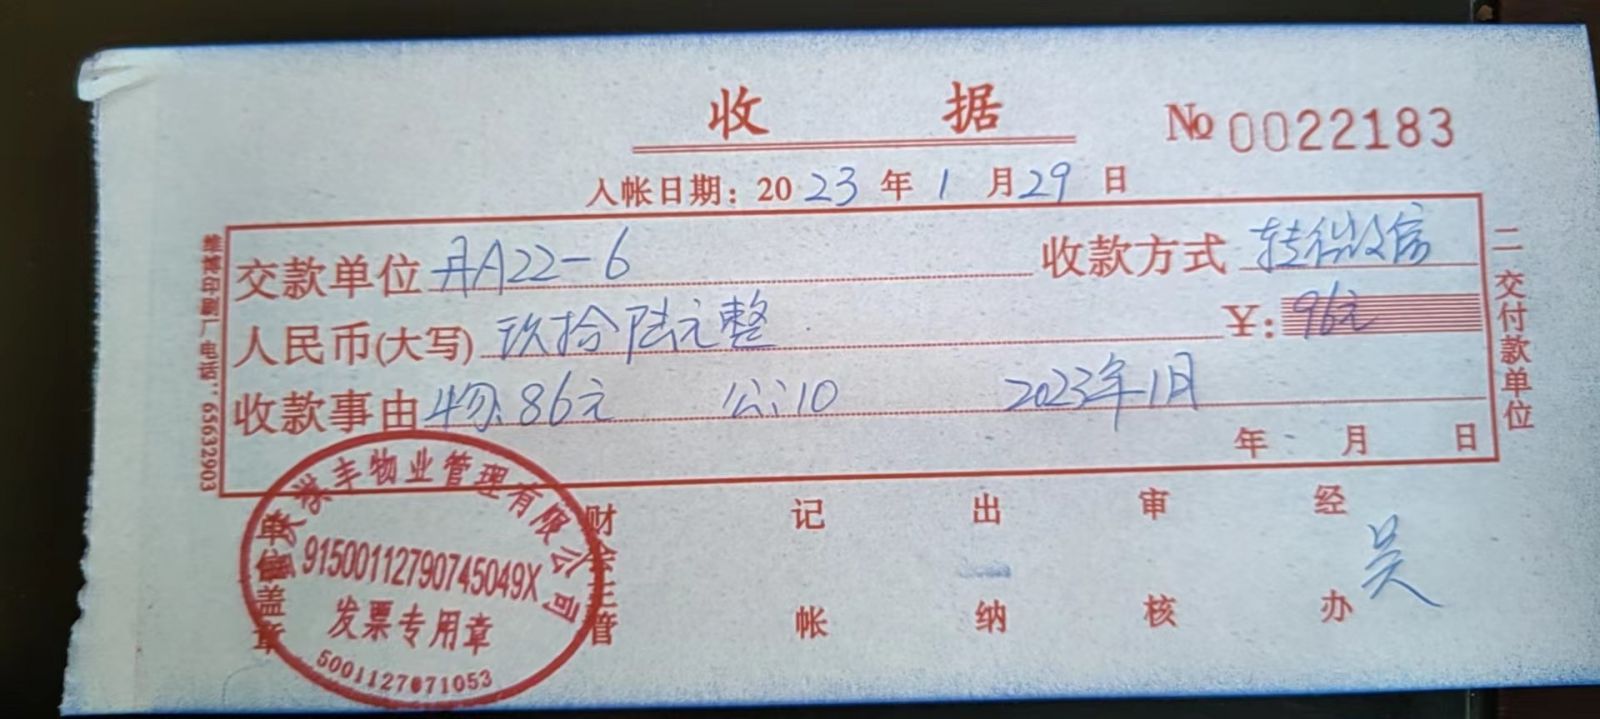 收 据
№ 0022183
入帐日期：2023年1月29日
交款单位 丹A22-6 收款方式 转微信
人民币(大写) 玖拾陆元整 ¥：96元
收款事由 物:86元 公:10 2023年1月
年 月 日
维博印刷厂 电话：65632903
二 交付款单位
单位盖章 财会主管 记帐 出纳 审核 经办 吴
丰物业管理有限公司
91500112790745049X
发票专用章
5001127071053